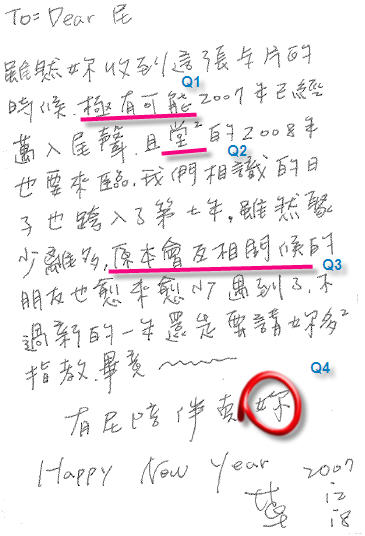 To=Dear 民
雖然妳收到這張卡片的
Q1
時候極有可能2007年已經
邁入尾聲,且堂²的2008年
Q2
也要來臨.我們相識的日
子也跨入了第七年,雖然聚
少離多,原本會互相問候的
Q3
朋友也愈來愈少遇到了,不
過新的一年還是要請妳多²
指教.畢竟~~~~
Q4
陪伴 妳
Happy New Year 2007
12
18